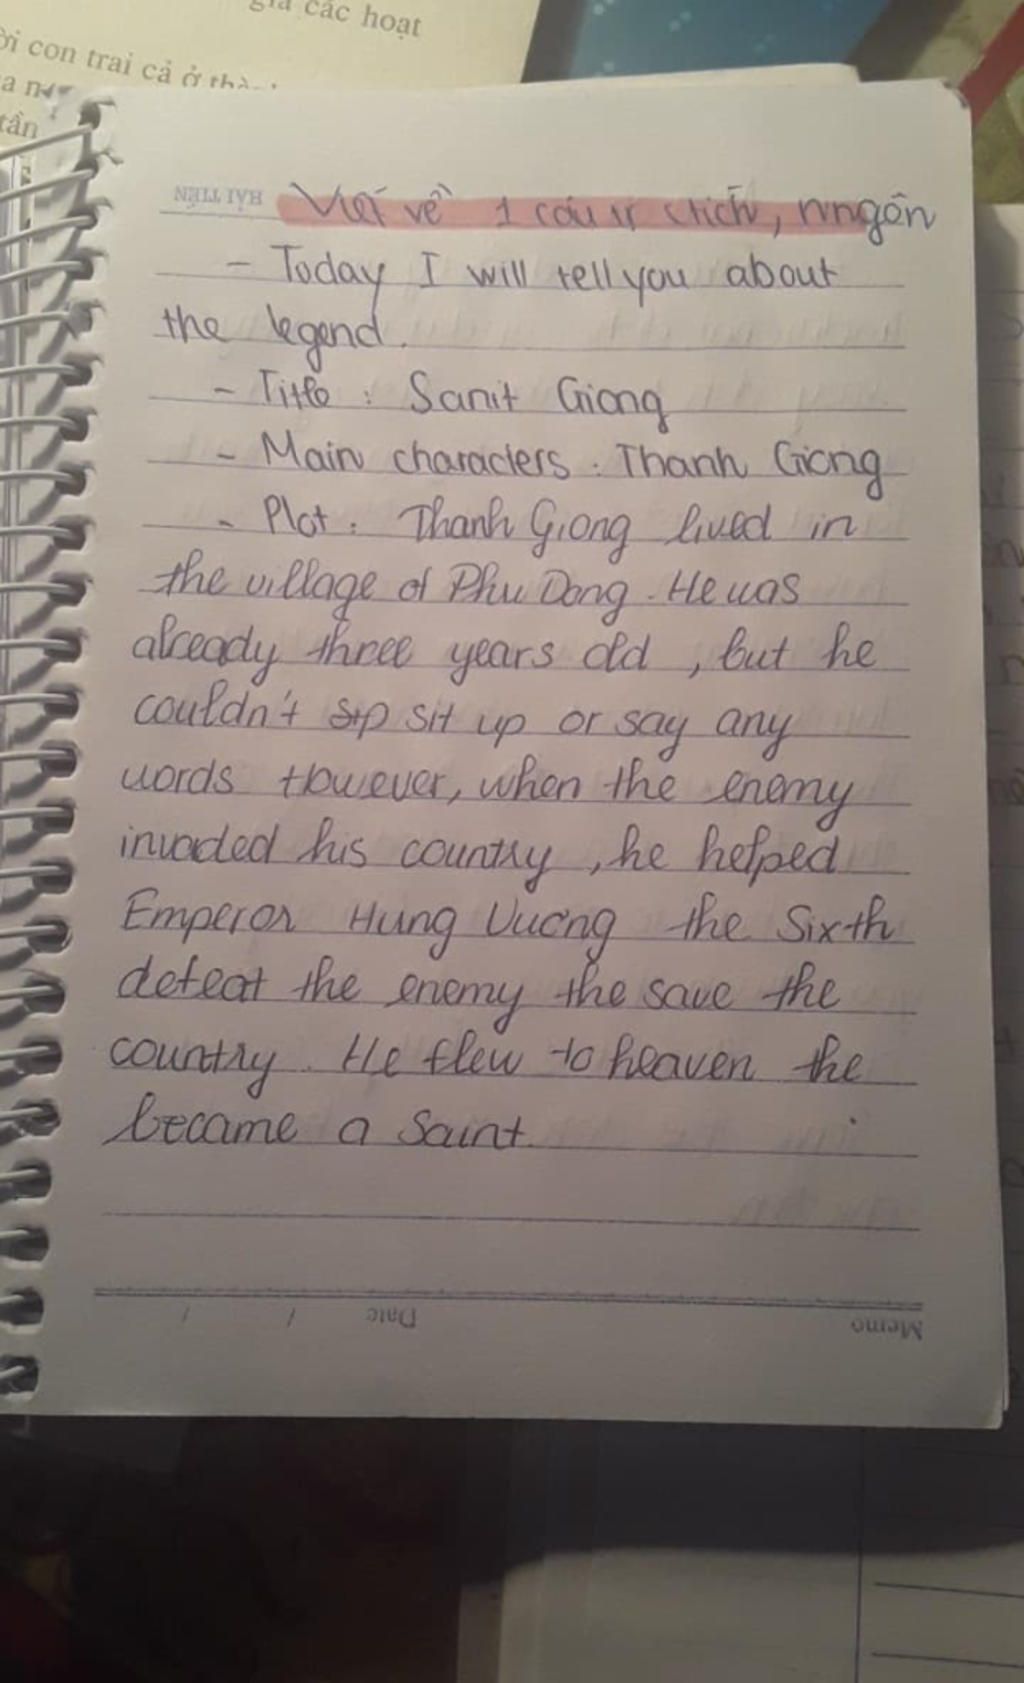 giá các hoạt
con trai cả ở
tần
HẢI TIẾN
Viết về 1 câu
- Today I will tell you about
the legend.
- Title : Sanit Giong
- Main characters : Thanh Giong
- Plot : Thanh Giong lived in
the village of Phu Dong. He was
already three years old , but he
couldn't sip sit up or say any
words However, when the enemy
invaded his country , he helped
Emperor Hung Vuong the Sixth
defeat the enemy the save the
country . He flew to heaven the
became a Saint.
Memo
Date / /